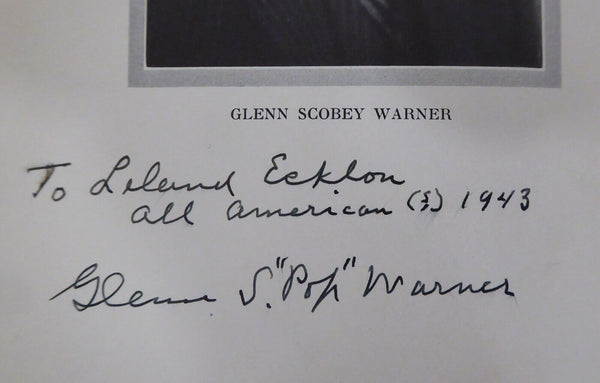 GLENN SCOBEY WARNER
To Leland Ecklon
All American (?) 1943
Glenn S. "Pop" Warner